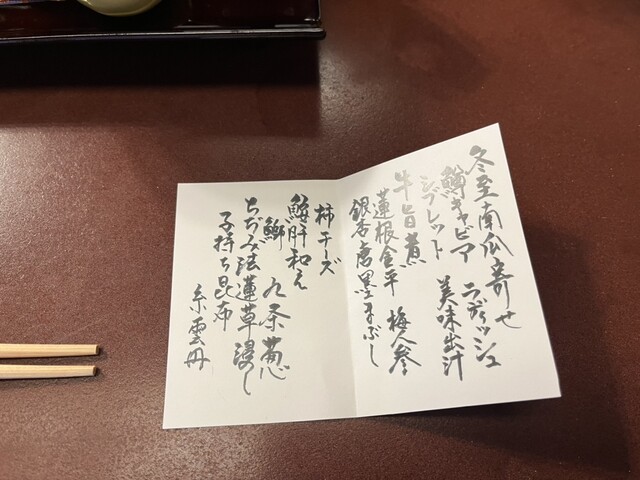 冬至南瓜寄せ
鱒キャビア ラディッシュ
シブレット 美味出汁
牛旨煮
蓮根金平 梅人参
銀杏唐墨まぶし
柿チーズ
鮟肝和え
鰤 九条葱
ちぢみ法蓮草浸し
子持ち昆布
糸雲丹